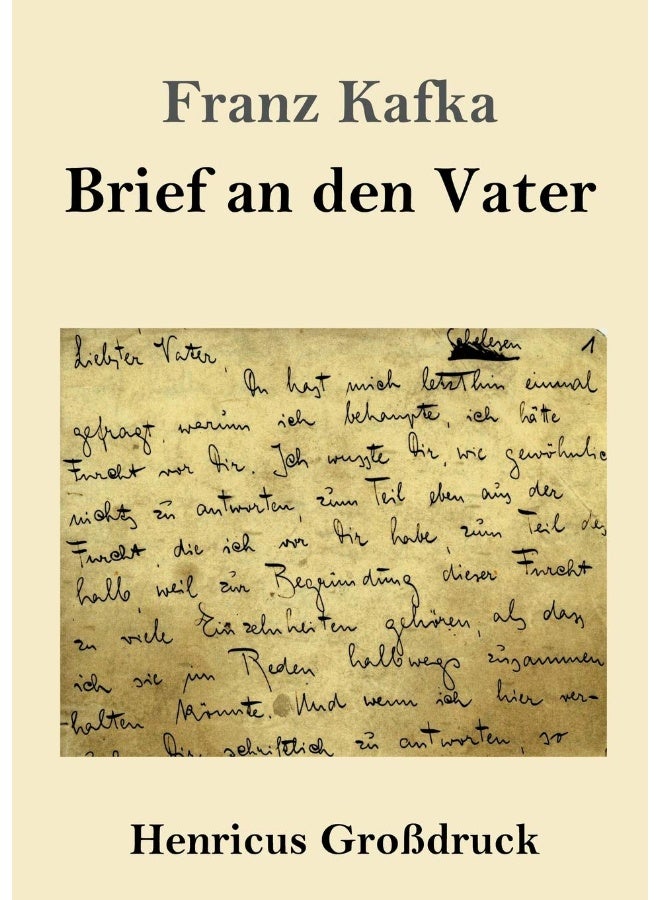 Franz Kafka
Brief an den Vater
Schelesen 1
Liebster Vater,
Du hast mich letzthin einmal
gefragt, warum ich behaupte, ich hätte
Furcht vor Dir. Ich wusste Dir, wie gewöhnlic
nichts zu antworten, zum Teil eben aus der
Furcht, die ich vor Dir habe, zum Teil des
halb, weil zur Begründung dieser Furcht
zu viele Einzelnheiten gehören, als dass
ich sie im Reden halbwegs zusammen
-halten könnte. Und wenn ich hier ver-
Dir schriftlich zu antworten, so
Henricus Großdruck